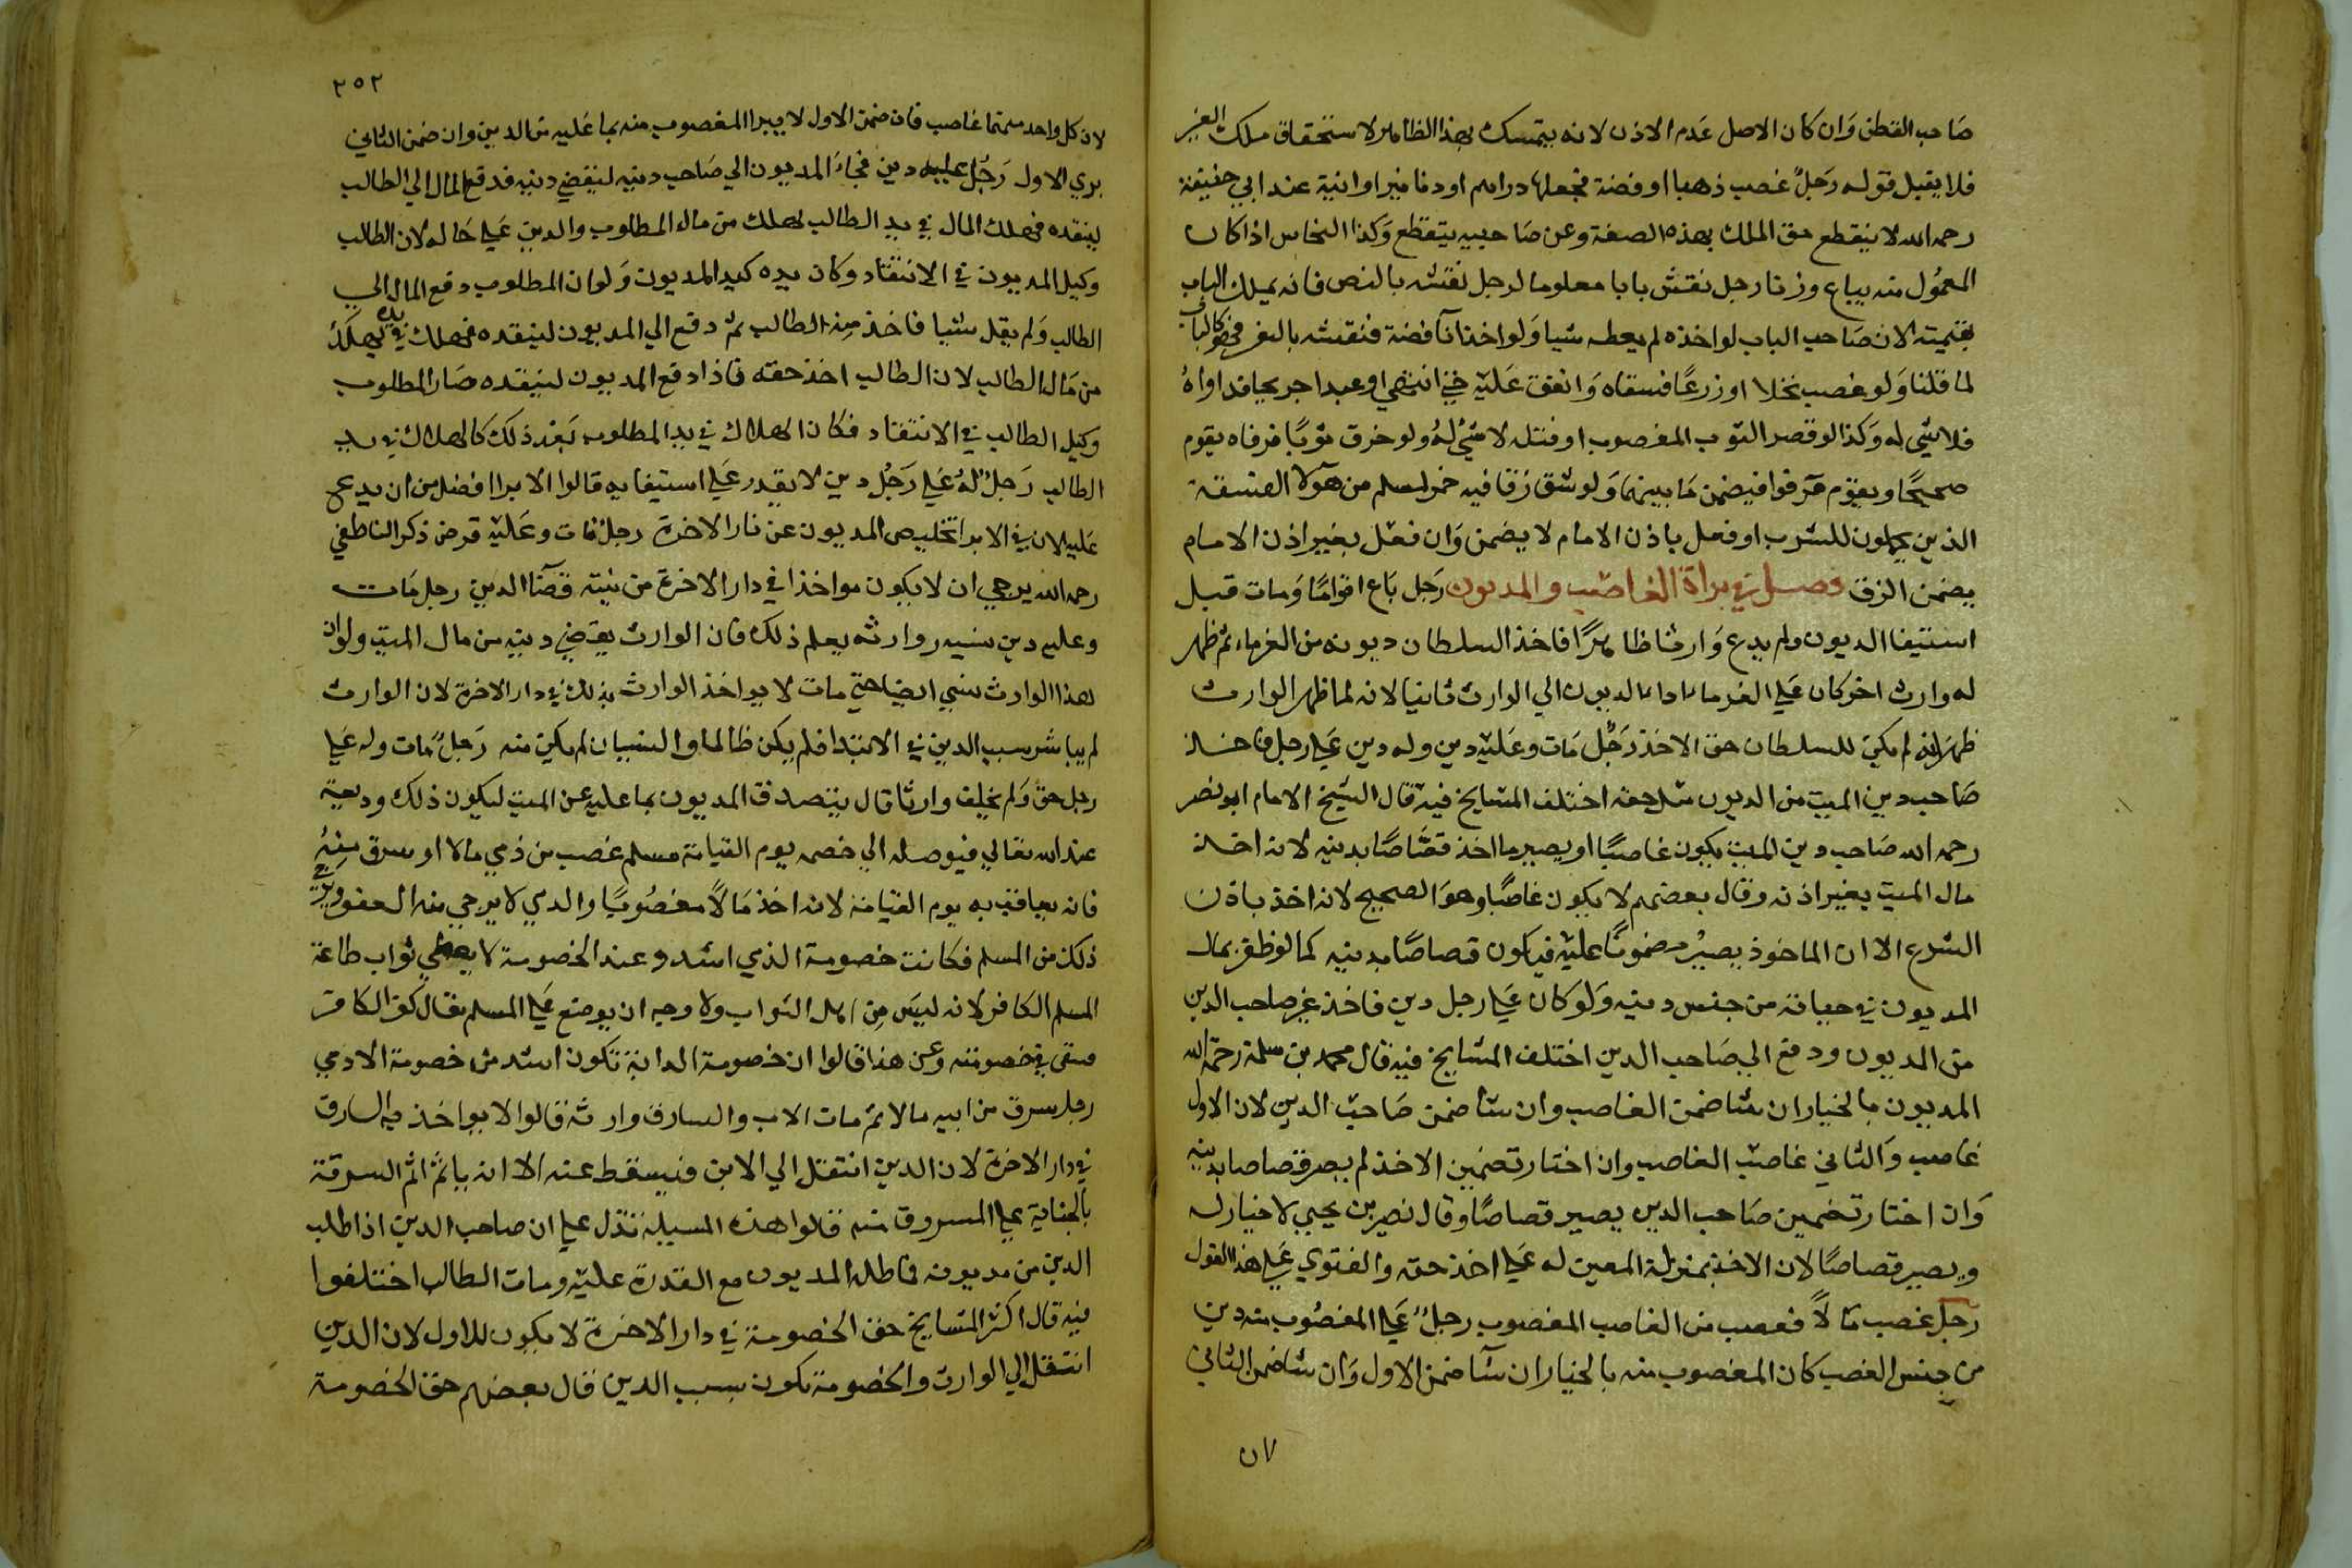 صَاحب القطن وَان كان الاصل عَدم الاذن لانه يتمسك بهذا الظاهر لاستحقاق ملك الغير
فلا يقبل قوله رَجلٌ غصب ذهبا او فضة فجعلها دراهم او دنانير او انية عند ابي حنيفة
رحمه الله لا ينقطع حق الملك بهذه الصفة وعن صَاحبيه ينقطع وَكذا النحاس اذا كان
المعمُول منه يباع وزنا رجل نقش بابا معلوما لرجل نقشه بالنص فانه يملك الباب
بقيمته لان صَاحب الباب لو اخذه لم يعطه شيا وَلو اخذ انآ فضة فنقشه بالنقر فهو كالباب
لما قلنا وَلو غصب نخلا او زرعًا فسقاه وَانفق عَليه حتى انتهى او عبدا جريحا فداواهُ
فلا شي له وَكذا لو قصر الثوب المغصوب او فتله لا شيُ لهُ ولو خرق ثوبًا فرفاه يقوم
صحيحًا ويقوّم مرفوا فيضمن مَا بينهما وَلو شق زقا فيه خمر لمسلم من هآولا الفسقة
الذين يحملون للشرب او فعل باذن الامام لا يضمن وَان فعل بغير اذن الامام
يضمن الزق فصل في براة الغاصب والمديون رَجل بَاع اقوامًا وَمات قبل
استيفا الديون ولم يدع وَارثا ظاهرًا فاخذ السلطان ديونه من الغرماء ثم ظهر
له وارث اخر كان عَلى الغرماء اداء الديون الى الوارث ثانيا لانه لما ظهر الوارث
ظهرَ انه لم يكن للسلطان حق الاخذ رَجُل مَات وعَليه دين وله دين عَلى رجل فاخذ
صَاحب دين الميت من المديون مثل حقه اختلف المشايخ فيه قال الشيخ الامام ابو نصر
رحمه الله صَاحب دين الميت يكون غاصبًا او يصير ما اخذ قصَاصًا بدينه لانه اخذ
مال الميت بغير اذنه وقال بعضهم لا يكون غاصبًا وهوَ الصحيح لانه اخذ باذن
الشرع الا ان الماخوذ يصيرُ مضمونًا عليه فيكون قصاصًا بدينه كما لو ظفر بمال
المديون في حياته من جنس دينه وَلو كان عَلى رجل دين فاخذ غير صاحب الدين
من المديون ودفع الى صَاحب الدين اختلف المشايخ فيه قال محمد بن سلمة رحمَه الله
المديون بالخيار ان شا ضمن الغاصب وان شا ضمن صَاحب الدين لان الاول
غاصب وَالثاني غاصبُ الغاصب وان اختار تضمين الاخذ لم يصر قصاصا بدينه
وَان اختار تضمين صَاحب الدين يصير قصاصًا وقال نصير بن يحيي لا خيار له
ويصير قصاصًا لان الاخذ بمنزلة المعين له عَلى اخذ حقه والفتوي عَلى هذا القول
رجل غصب مَالاً فغصب من الغاصب المغصوب رجلٌ عَلى المغصُوب منه دين
من جنس الغصب كان المغصوب منه بالخيار ان شآ ضمن الاول وَان شا ضمن الثاني
لان
٢٥٢
لان كل واحد منهما غاصب فان ضمن الاول لا يبرا المغصوب منه بما عَليه من الدين وان ضمن الثاني
بري الاول رَجُل عليه دين فجاءَ المديون الي صَاحب دينه ليقضي دينه فدفع المال الي الطالب
لينقده فهلك المال في يد الطالب يهلك من مال المطلوب والدين عَلى حَاله لان الطالب
وكيل المديون في الانتقاد وكان يده كيد المديون وَلو ان المطلوب دفع المال الي
الطالب وَلم يقل شيا فاخذ مِنه الطالب ثم دفع الي المديون لينقده فهلك في يده يهلكُ
من مَال الطالب لان الطالب اخذ حقه فاذا دفع المديون لينقده صَار المطلوب
وكيل الطالب في الانتقاد فكان الهلاك في يد المطلوب بَعْد ذلك كالهلاك في يد
الطالب رَجلٌ لهُ عَلى رَجُل دين لا يقدر عَلى استيفايه قالوا الابرا افضل من ان يدعي
عَليه لان في الابرا تخليص المديون عن نار الاخرة رجلٌ مَات وعَليه قرض ذكر الناطفي
رحمه الله يرجي ان لا يكون مواخذا في دار الاخرة من نيته قضآ الدين رجل مَات
وعليه دين نسيه ووارثه يعلم ذلك فان الوارث يقضي دينه من مال الميت ولو ان
هذا الوارث نسي ايضا حتى مات لا يواخذ الوارث بذلك في دار الاخرة لان الوارث
لم يباشر سبب الدين في الابتدا فلم يكن ظالما والنسيان لم يكن منه رَجلٌ مَات وله عَلى
رجل حق وَلم يخلف وارثا قال يتصدق المديون بما عليه عن الميت ليكون ذلك وديعة
عند الله تعالي فيوصله الي خصمه يوم القيامة مسلم غصب من ذمي مالا او سرق منهُ
فانه يعاقب به يوم القيامة لانه اخذ مَالاً مغصُوبًا والذمي لا يرجي منه العفو ويرجي
ذلك من المسلم فكانت خصومة الذمي اشد وعند الخصومة لا يعطي ثواب طاعة
المسلم الكافر لانه ليسَ مِن اهل الثواب ولا وجه ان يوضع عَلى المسلم بقال كفر الكافر
فبقى في خصومته وعن هذا قالوا ان خصومة الدابة تكون اشد من خصومة الادمي
رجل سرق من ابيه مالا ثم مات الاب والسارق وارثه قالوا لا يواخذ به السارق
في دار الاخرة لان الدين انتقل الي الابن فيسقط عنه الا انه ياثمُ اثم السرقة
بالجناية على المسروق منه قالوا هذه المسيلة تدل على ان صاحب الدين اذا طلب
الدين من مديونه فماطله المديون مع القدرة عليه ومات الطالب اختلفوا
فيه قال اكثر المشايخ حق الخصومة في دار الاخرة لا يكون للاول لان الدين
انتقل الي الوارث والخصومة تكون بسبب الدين قال بعضهم حق الخصومة